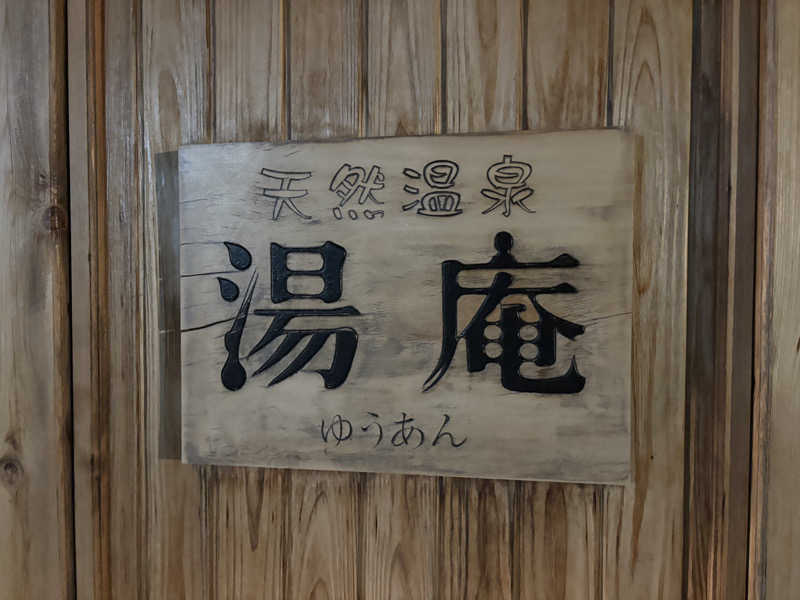 天然温泉
湯庵
ゆうあん